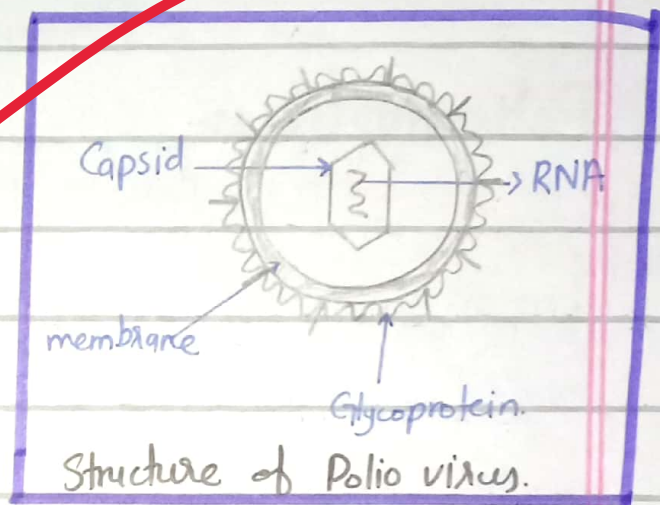 Capsid
RNA
membrane
Glycoprotein.
Structure of Polio virus.